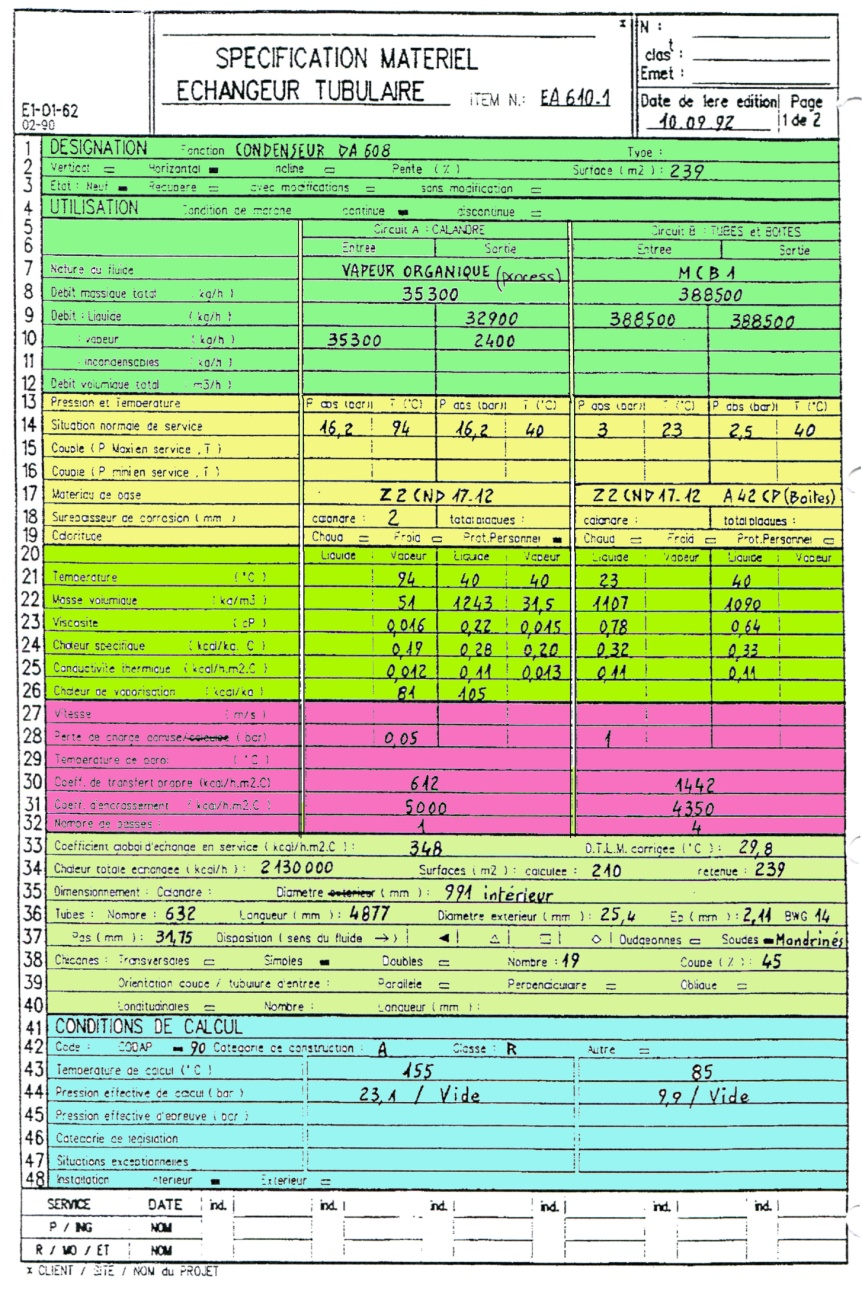 x
SPECIFICATION MATERIEL
ECHANGEUR TUBULAIRE ITEM N.: EA 610.1
N :
clas^t :
Emet :
Date de 1ere edition Page
10.09.92 1 de 2
E1-01-62
02-90
1 DESIGNATION Fonction CONDENSEUR DA 608 Type :
2 Vertical Horizontal Incline Pente ( % ) Surface ( m2 ) : 239
3 Etat : Neuf Recupere avec modifications sans modification
4 UTILISATION Condition de marche continue discontinue
5 Circuit A : CALANDRE Circuit B : TUBES et BOITES
6 Entree Sortie Entree Sortie
7 Nature du fluide VAPEUR ORGANIQUE (process) MCB 1
8 Debit massique total ( kg/h ) 35300 388500
9 Debit : Liquide ( kg/h ) 32900 388500 388500
10 : vapeur ( kg/h ) 35300 2400
11 : incondensables ( kg/h )
12 Debit volumique total ( m3/h )
13 Pression et Temperature P abs (bar) T (°C) P abs (bar) T (°C) P abs (bar) T (°C) P abs (bar) T (°C)
14 Situation normale de service 16,2 94 16,2 40 3 23 2,5 40
15 Couple ( P Maxi en service , T )
16 Couple ( P mini en service , T )
17 Materiau de base Z2 CND 17-12 Z2 CND 17-12 A42 CP (Boites)
18 Surepaisseur de corrosion ( mm ) calandre : 2 total plaques : calandre : total plaques :
19 Calorifuge Chaud Froid Prot.Personnel Chaud Froid Prot.Personnel
20 Liquide Vapeur Liquide Vapeur Liquide Vapeur Liquide Vapeur
21 Temperature ( °C ) 94 40 40 23 40
22 Masse volumique ( kg/m3 ) 51 1243 31,5 1107 1090
23 Viscosite ( cP ) 0,016 0,22 0,015 0,78 0,64
24 Chaleur specifique ( kcal/kg. C ) 0,19 0,28 0,20 0,32 0,33
25 Conductivite thermique ( kcal/h.m2.C ) 0,012 0,11 0,013 0,11 0,11
26 Chaleur de vaporisation ( kcal/kg ) 81 105
27 Vitesse ( m/s )
28 Perte de charge admise/calculee ( bar ) 0,05 1
29 Temperature de paroi ( °C )
30 Coeff. de transfert propre (kcal/h.m2.C) 612 1442
31 Coeff. d'encrassement ( kcal/h.m2.C ) 5000 4350
32 Nombre de passes : 1 4
33 Coefficient global d'echange en service ( kcal/h.m2.C ) : 348 D.T.L.M. corrigee ( °C ) : 29,8
34 Chaleur totale echangee ( kcal/h ) : 2130000 Surfaces ( m2 ) : calculee : 210 retenue : 239
35 Dimensionnement : Calandre : Diametre exterieur ( mm ) : 991 intérieur
36 Tubes : Nombre : 632 Longueur ( mm ) : 4877 Diametre exterieur ( mm ) : 25,4 Ep ( mm ) : 2,11 BWG 14
37 Pas ( mm ) : 31,75 Disposition ( sens du fluide → ) Dudgeonnes Soudes Mandrinés
38 Chicanes : Transversales Simples Doubles Nombre : 19 Coupe ( % ) : 45
39 Orientation coupe / tubulure d'entree : Parallele Perpendiculaire Oblique
40 Longitudinales Nombre : Longueur ( mm ) :
41 CONDITIONS DE CALCUL
42 Code : CODAP 90 Categorie de construction : A Classe : R Autre
43 Temperature de calcul ( °C ) 155 85
44 Pression effective de calcul ( bar ) 23,1 / Vide 9,9 / Vide
45 Pression effective d'epreuve ( bar )
46 Categorie de legislation
47 Situations exceptionnelles
48 Installation Interieur Exterieur
SERVICE DATE ind. ind. ind. ind. ind. ind.
P / ING NOM
R / MO / ET NOM
x CLIENT / SITE / NOM du PROJET